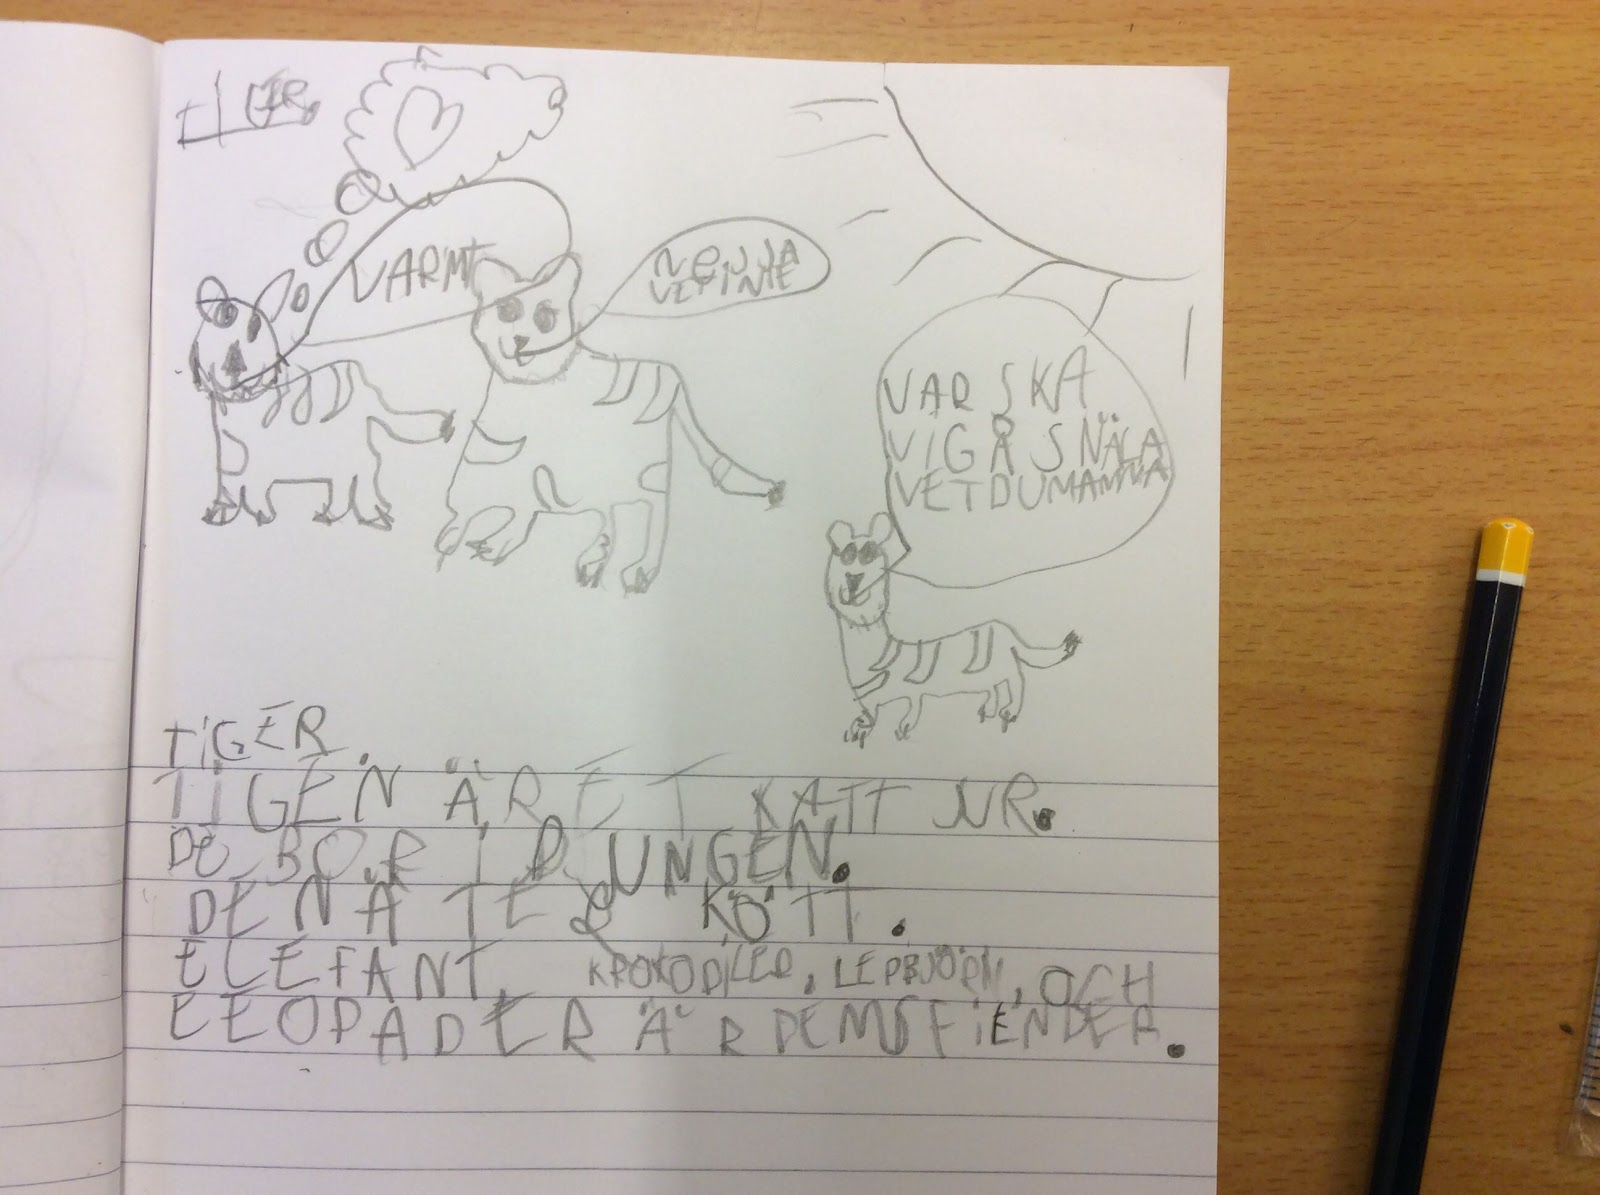 TIGER
VARMT
NEJ JA
VET INTE
VAR SKA
VI GÅ SNÄLA
VET DU MAMMA
TIGER
TIGEN ÄR ET KATT JUR.
DE BOR I DJUNGEN.
DEN ÄTER KÖTT.
ELEFANT, KROKODILER, LEPBJÖRN, OCH
LEOPADER ÄR DEMS FIENDER.